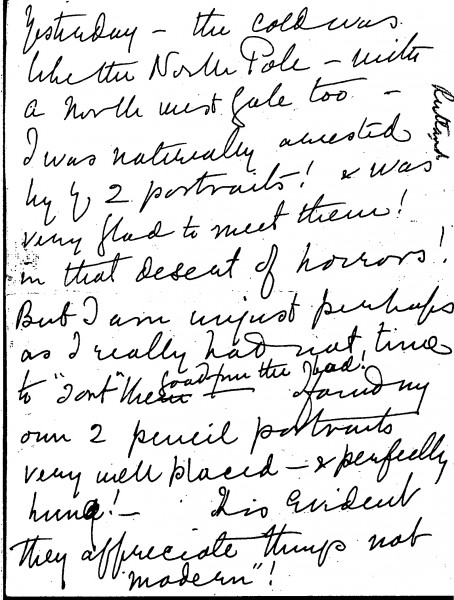 Yesterday – the cold was
like the North Pole – with
a North west gale too –
Rutland
I was naturally arrested
by y 2 portraits! & was
very glad to meet them!
in that desert of horrors!
But I am unjust perhaps
as I really had not time
good from the bad!
to "sort" them – I found my
own 2 pencil portraits
very well placed – & perfectly
hung! – It is evident
they appreciate things not
"modern"!